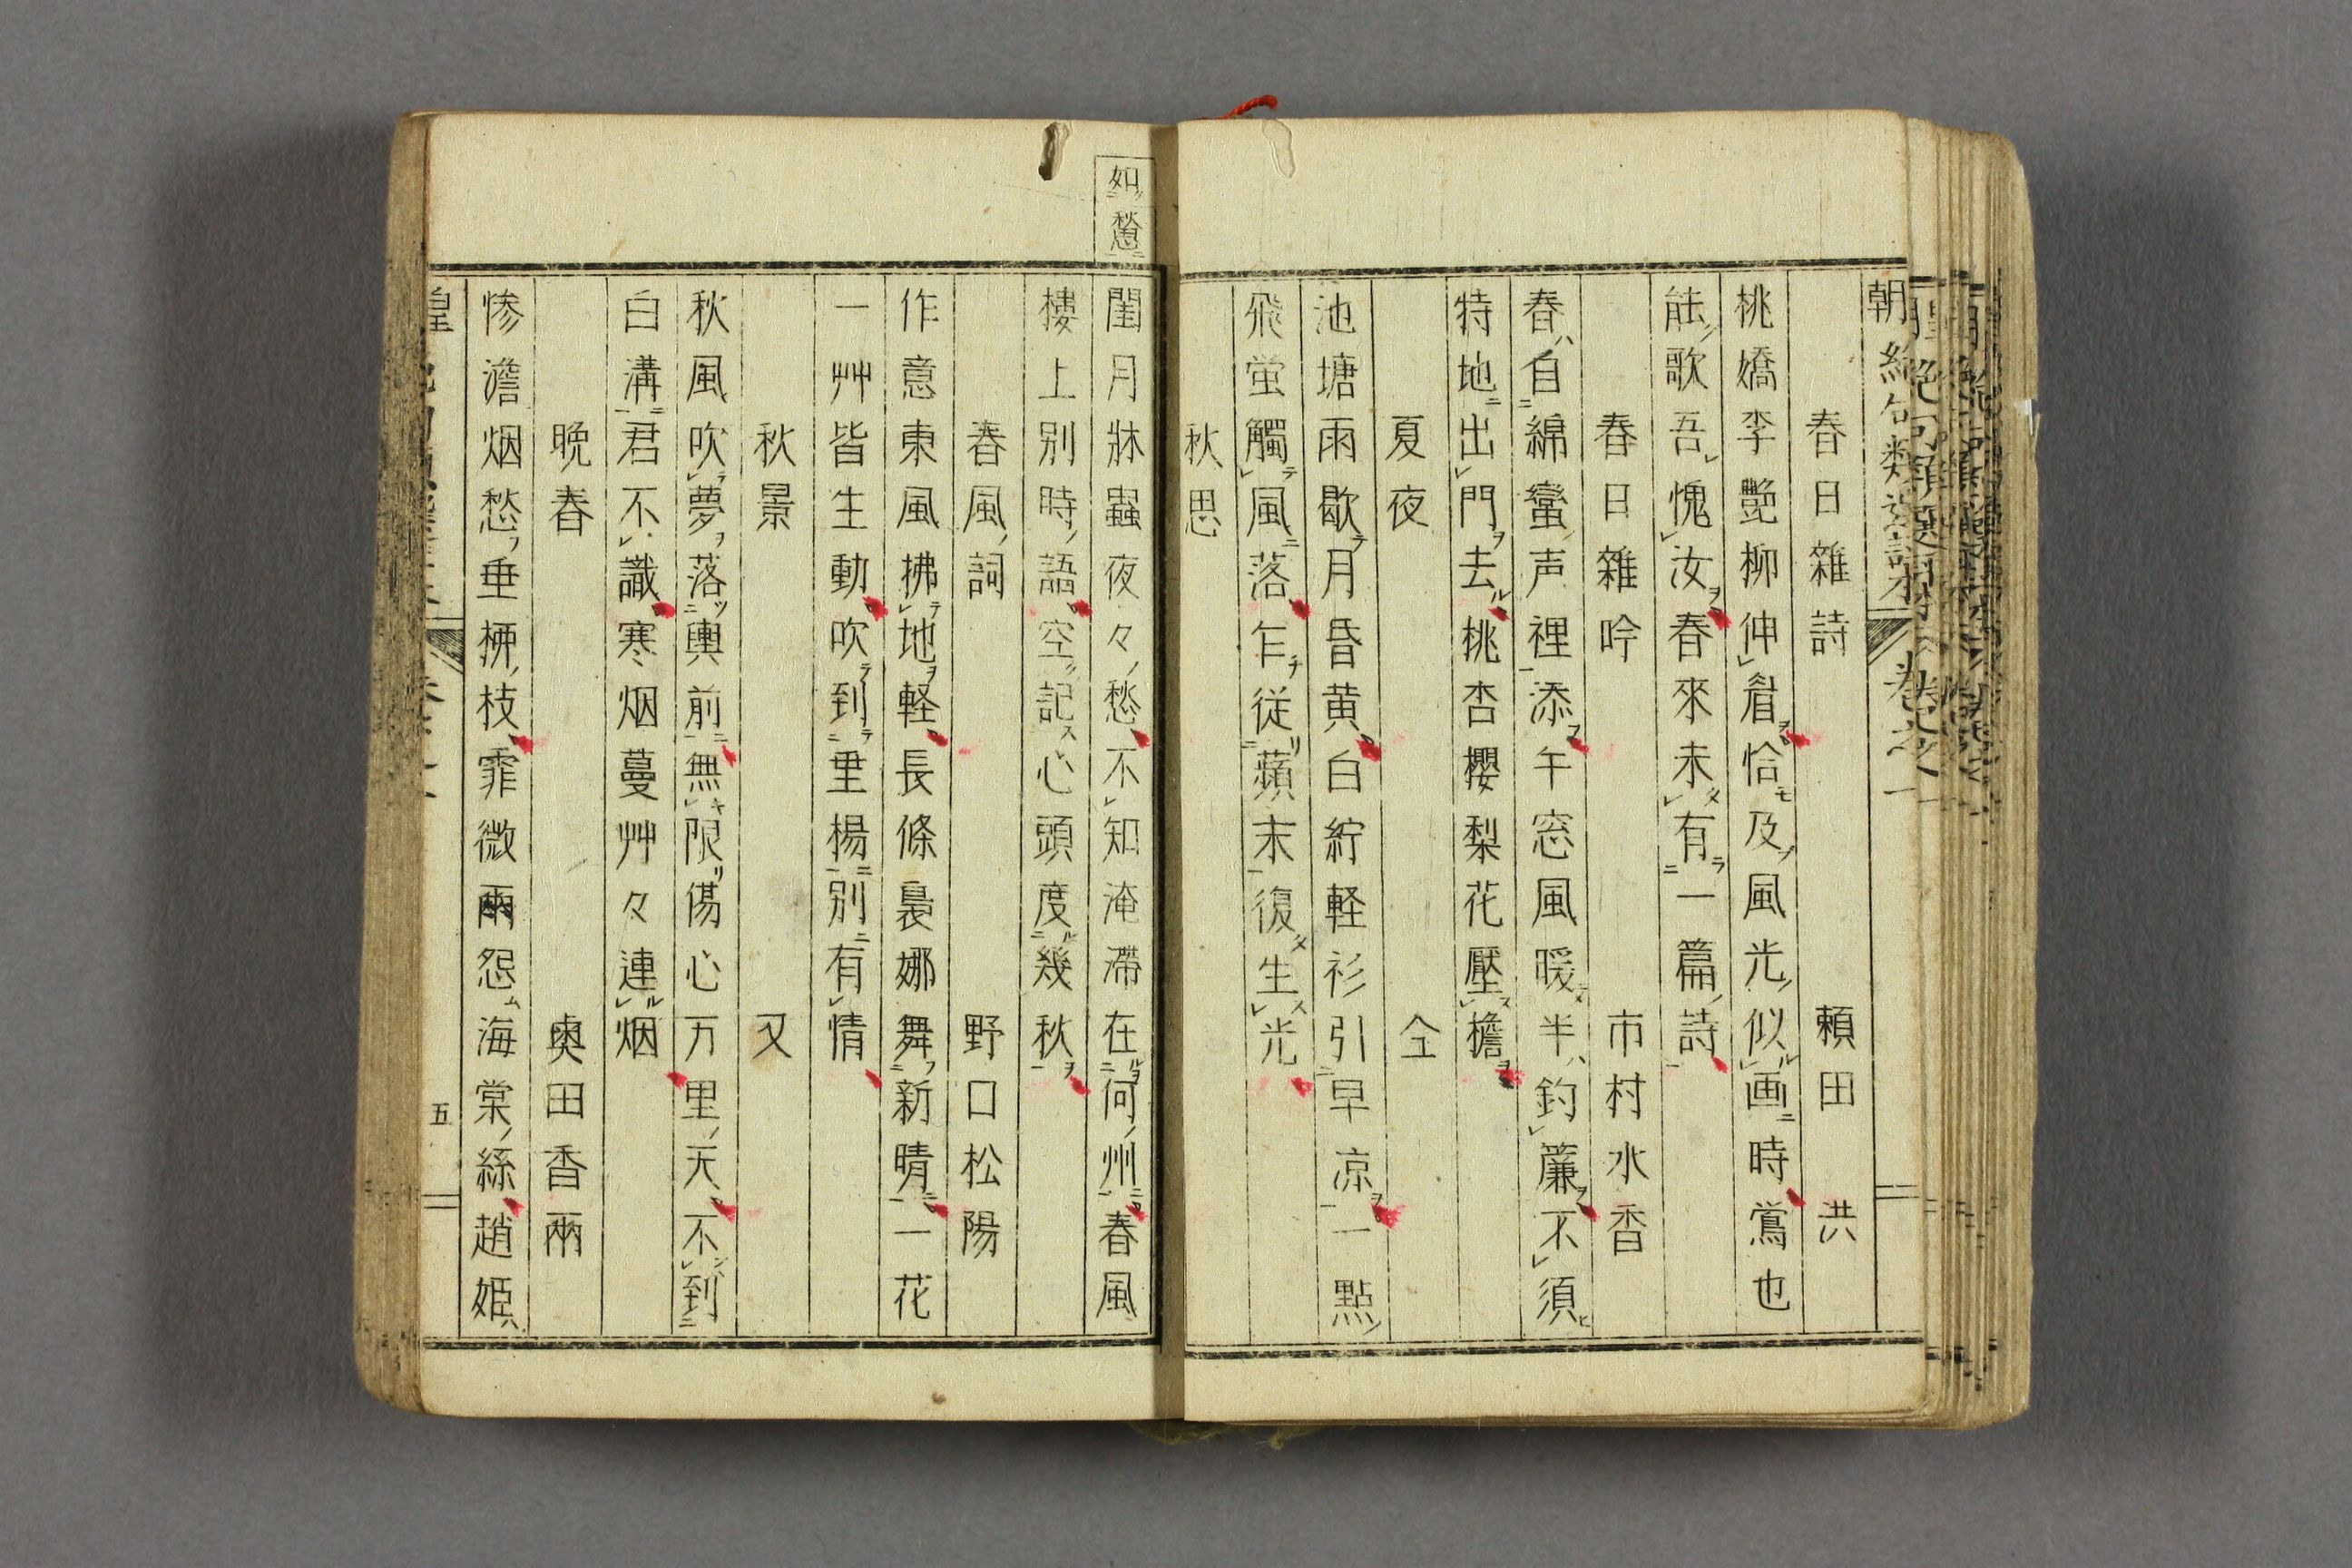 春日雜詩 頼田 洪
桃嬌李艷柳伸眉恰及風光似画時鴬也
能歌吾愧汝春來未有一篇詩
春日雜吟 市村水香
春自綿蠻声裡添午窓風暖半鈎簾不須
特地出門去桃杏櫻梨花壓檐
夏夜 仝
池塘雨歇月昏黄白紵軽衫引早凉一點
飛蛍觸風落乍従蘋末復生光
秋思
如愁
閨月牀蟲夜々愁不知淹滯在何州春風
樓上別時語空記心頭度幾秋
春風詞 野口松陽
作意東風拂地軽長條裊娜舞新晴一花
一艸皆生動吹到垂楊別有情
秋景 又
秋風吹夢落輿前無限傷心万里天不到
白溝君不識寒烟蔓艸々連烟
晩春 奥田香雨
惨澹烟愁垂柳枝霏微雨怨海棠絲趙姫
五